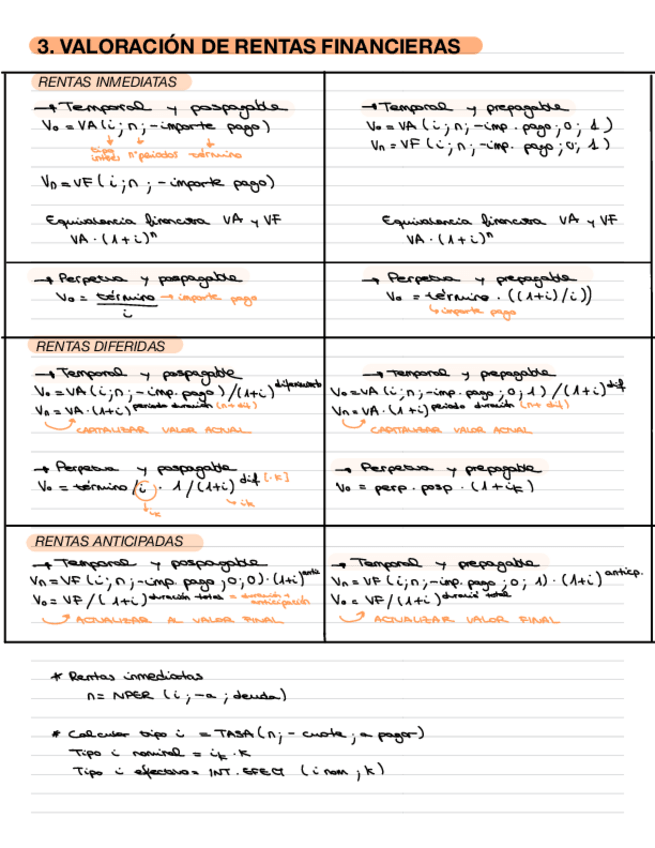 3. VALORACIÓN DE RENTAS FINANCIERAS
RENTAS INMEDIATAS
→ Temporal y pospagable
V₀ = VA (i ; n ; -importe pago)
tipo interés nº periodos término
Vn = VF (i ; n ; - importe pago)
Equivalencia financiera VA y VF
VA · (1+i)ⁿ
→ Temporal y prepagable
V₀ = VA (i ; n ; -imp. pago ; 0 ; 1)
Vn = VF (i ; n ; -imp. pago ; 0 ; 1)
Equivalencia financiera VA y VF
VA · (1+i)ⁿ
→ Perpetua y pospagable
V₀ = término / i → importe pago
→ Perpetua y prepagable
V₀ = término · ((1+i)/i))
↳ importe pago
RENTAS DIFERIDAS
→ Temporal y pospagable
V₀ = VA (i ; n ; - imp. pago) / (1+i)^diferimiento
Vn = VA · (1+i)^periodo duración (n+dif)
CAPITALIZAR VALOR ACTUAL
→ Temporal y prepagable
V₀ = VA (i ; n ; -imp. pago ; 0 ; 1) / (1+i)^dif
Vn = VA · (1+i)^periodo duración (n+dif)
CAPITALIZAR VALOR ACTUAL
→ Perpetua y pospagable
V₀ = término / i · 1 / (1+i)^dif [·k]
↓ iₖ ↘ iₖ
→ Perpetua y prepagable
V₀ = perp. posp · (1+iₖ)
RENTAS ANTICIPADAS
→ Temporal y pospagable
Vn = VF (i ; n ; -imp. pago ; 0 ; 0) · (1+i)^antic
V₀ = VF / (1+i)^duración total = duración + anticipación
ACTUALIZAR AL VALOR FINAL
→ Temporal y prepagable
Vn = VF (i ; n ; -imp. pago ; 0 ; 1) · (1+i)^anticip.
V₀ = VF / (1+i)^duració total
ACTUALIZAR VALOR FINAL
* Rentas inmediatas
n = NPER (i ; -a ; deuda)
* Calcular tipo i = TASA (n ; - cuota ; a pagar)
Tipo i nominal = iₖ · k
Tipo i efectivo = INT. EFECT (i nom ; k)